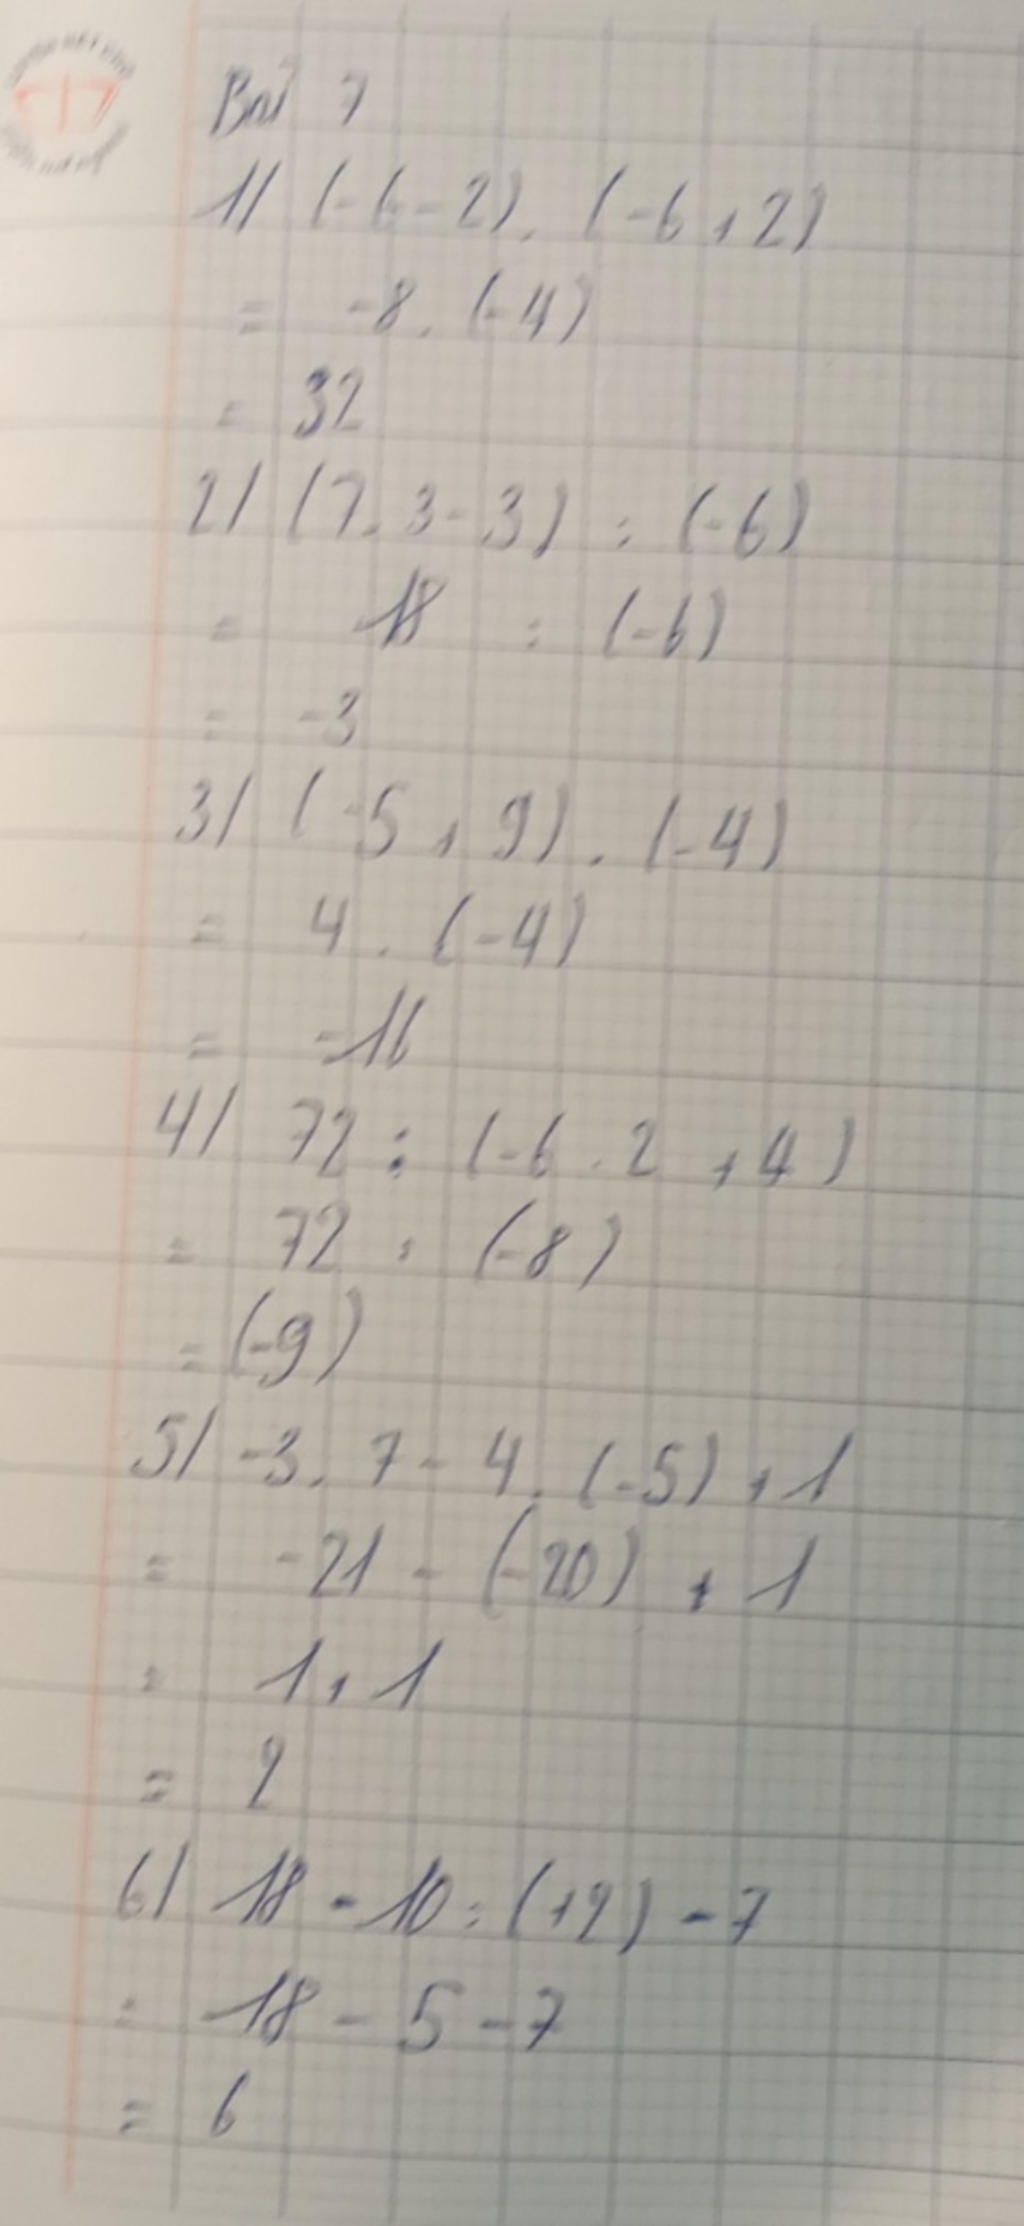 Bài 7
1/ (-6-2) . (-6+2)
= -8 . (-4)
= 32
2/ (7.3-3) : (-6)
= 18 : (-6)
= -3
3/ (-5+9) . (-4)
= 4 . (-4)
= -16
4/ 72 : (-6.2+4)
= 72 : (-8)
= (-9)
5/ -3.7-4.(-5)+1
= -21-(-20)+1
= 1+1
= 2
6/ 18-10:(+2)-7
= 18-5-7
= 6